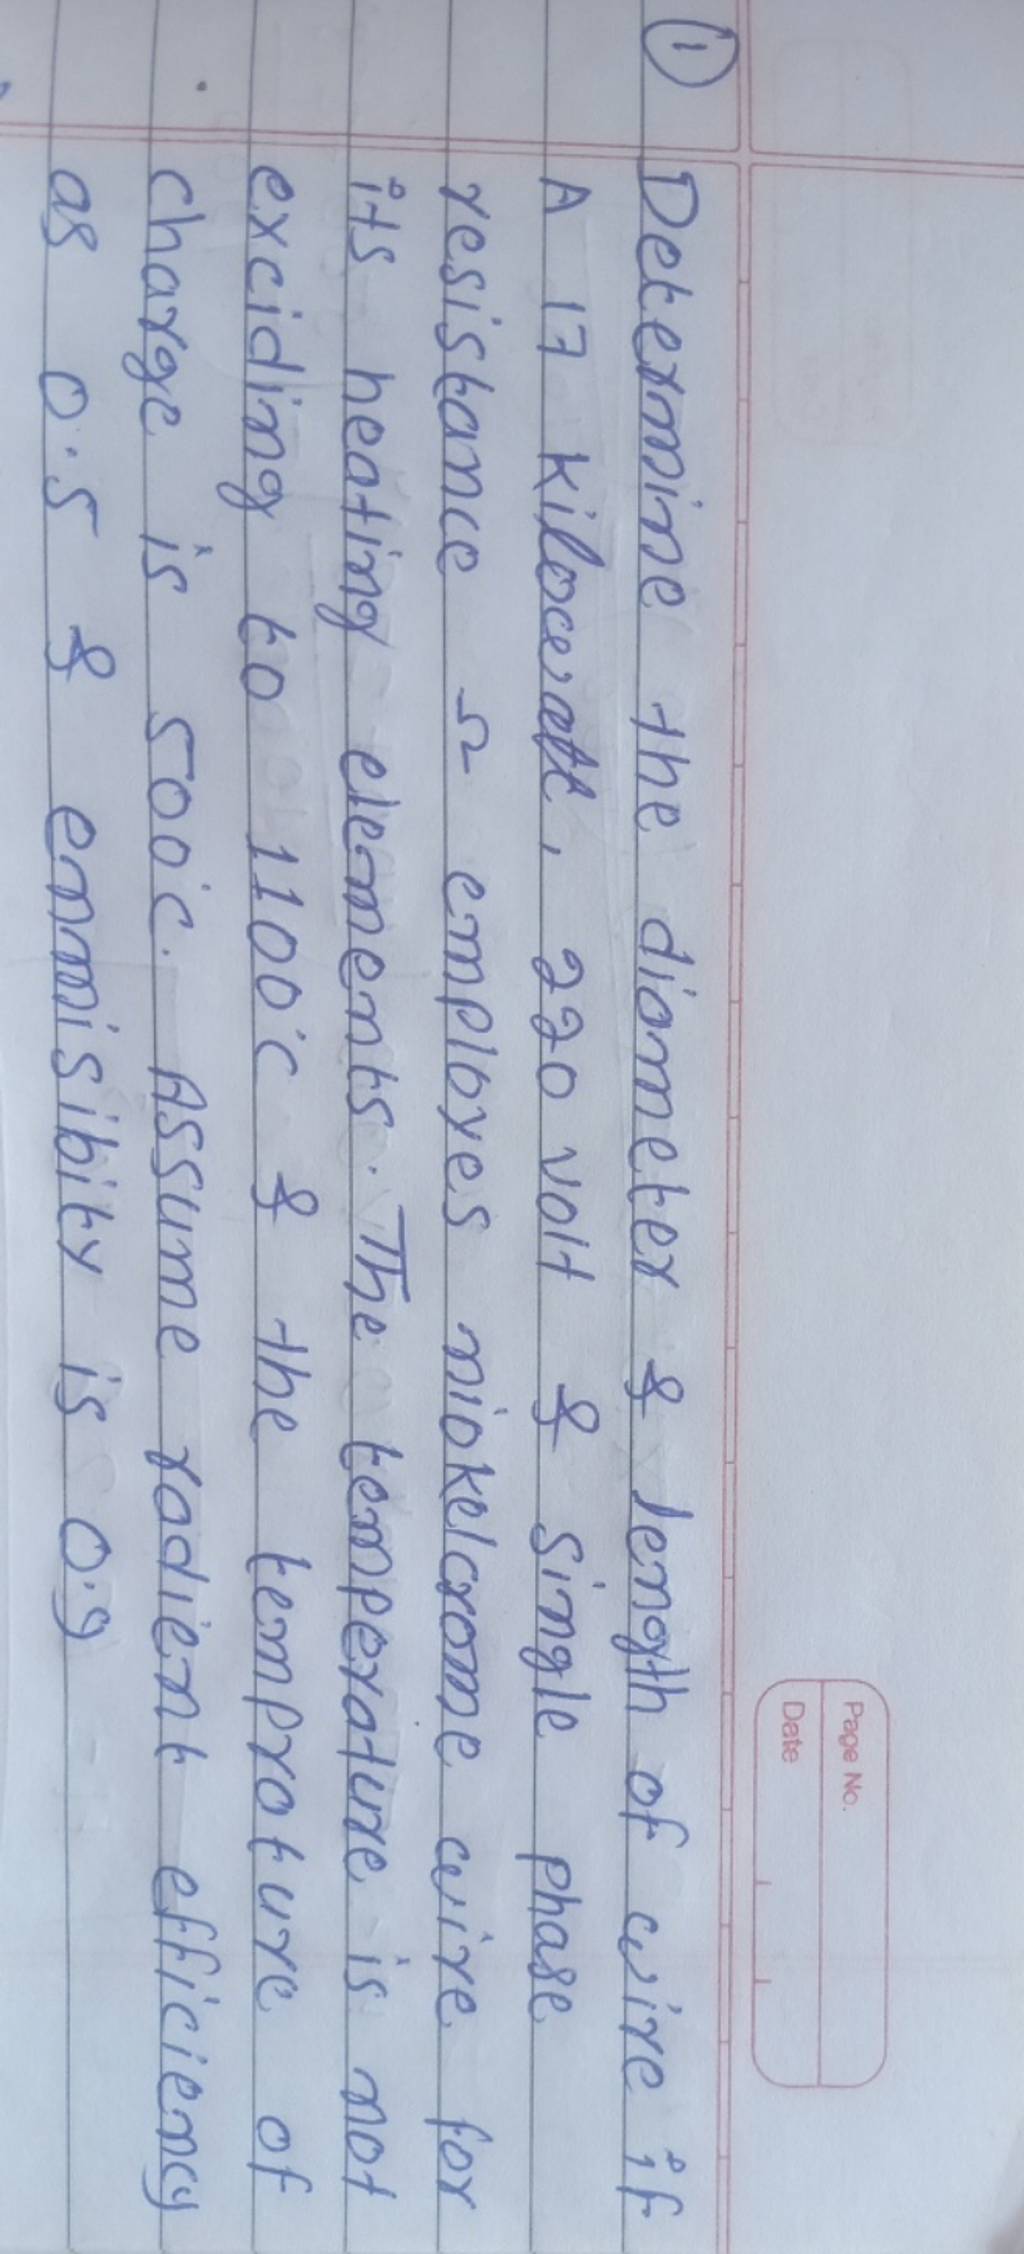 Page No.
Date
① Determine the diameter & length of wire if
A 17 kilowatt, 220 volt & single phase
resistance Ω employes niokelcrome wire for
its heating elements. The temperature is not
exciding to 1100°c & the temprature of
charge is 500°c. Assume radient efficiency
as 0.5 & emmisibity is 0.9